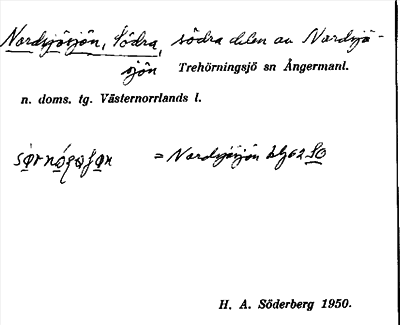 Nordsjösjön, Södra, södra delen av Nordsjö-
sjön Trehörningsjö sn Ångermanl.
n. doms. tg. Västernorrlands l.
= Nordsjösjön blg 62 SO
H. A. Söderberg 1950.